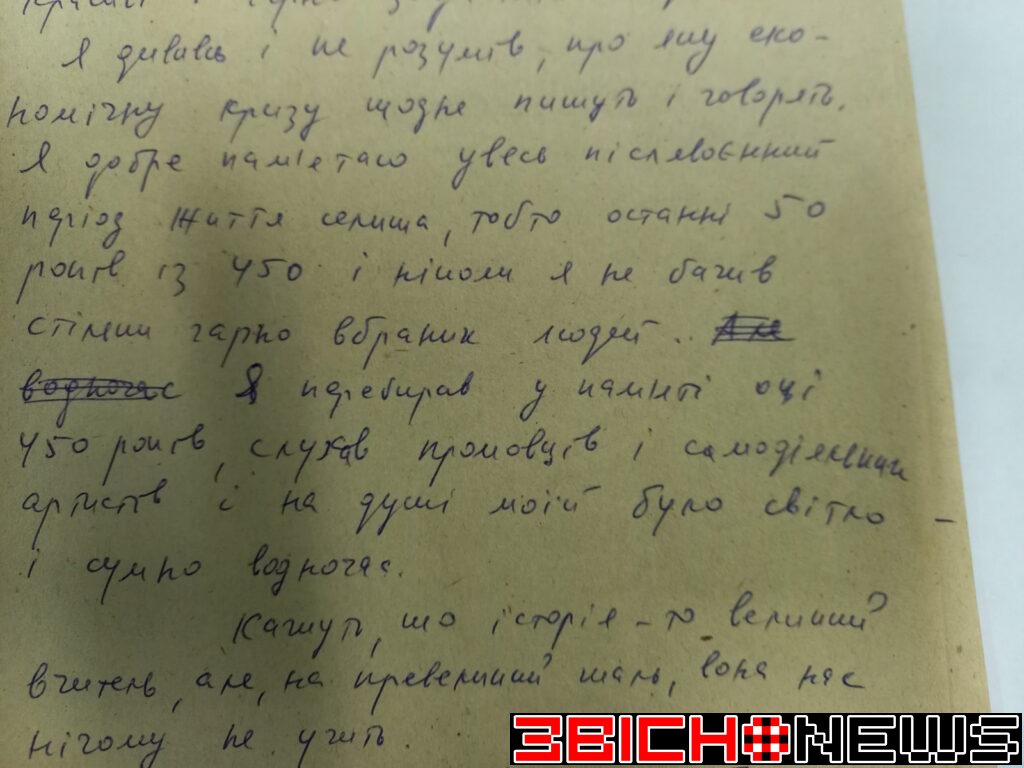 Я дививсь і не розумів, про яку еко-
номічну кризу щодня пишуть і говорять.
Я добре пам'ятаю увесь післявоєнний
період життя селища, тобто останні 50
років із 450 і ніколи я не бачив
стільки гарно вбраних людей. Але
водночас Я перебирав у пам'яті оці
450 років, слухав промовців і самодіяльних
артистів і на душі моїй було світло –
і сумно водночас.
Кажуть, що історія – то великий
вчитель, але, на превеликий жаль, вона нас
нічому не учить.
3BICHONEWS